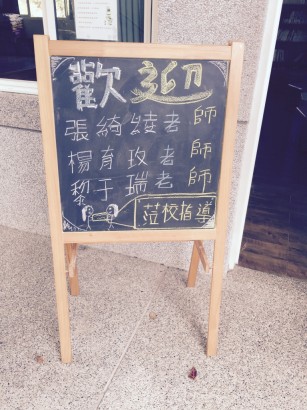 歡迎
張綺綾老師
楊育玫老師
黎于瑞老師
蒞校指導